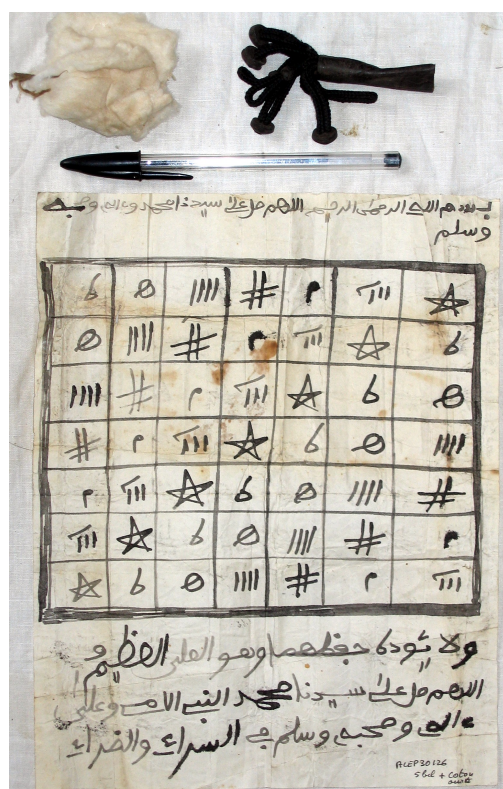 بسم الله الرحمٰن الرحيم اللهم صل على سيدنا محمد وءاله وصحبه
وسلم
ولا يئوده حفظهما وهو العلي العظيم
اللهم صل على سيدنا محمد النبي الامي وعلى
ءاله وصحبه وسلم في السراء والضراء
ALEP30126
5 bil + coton